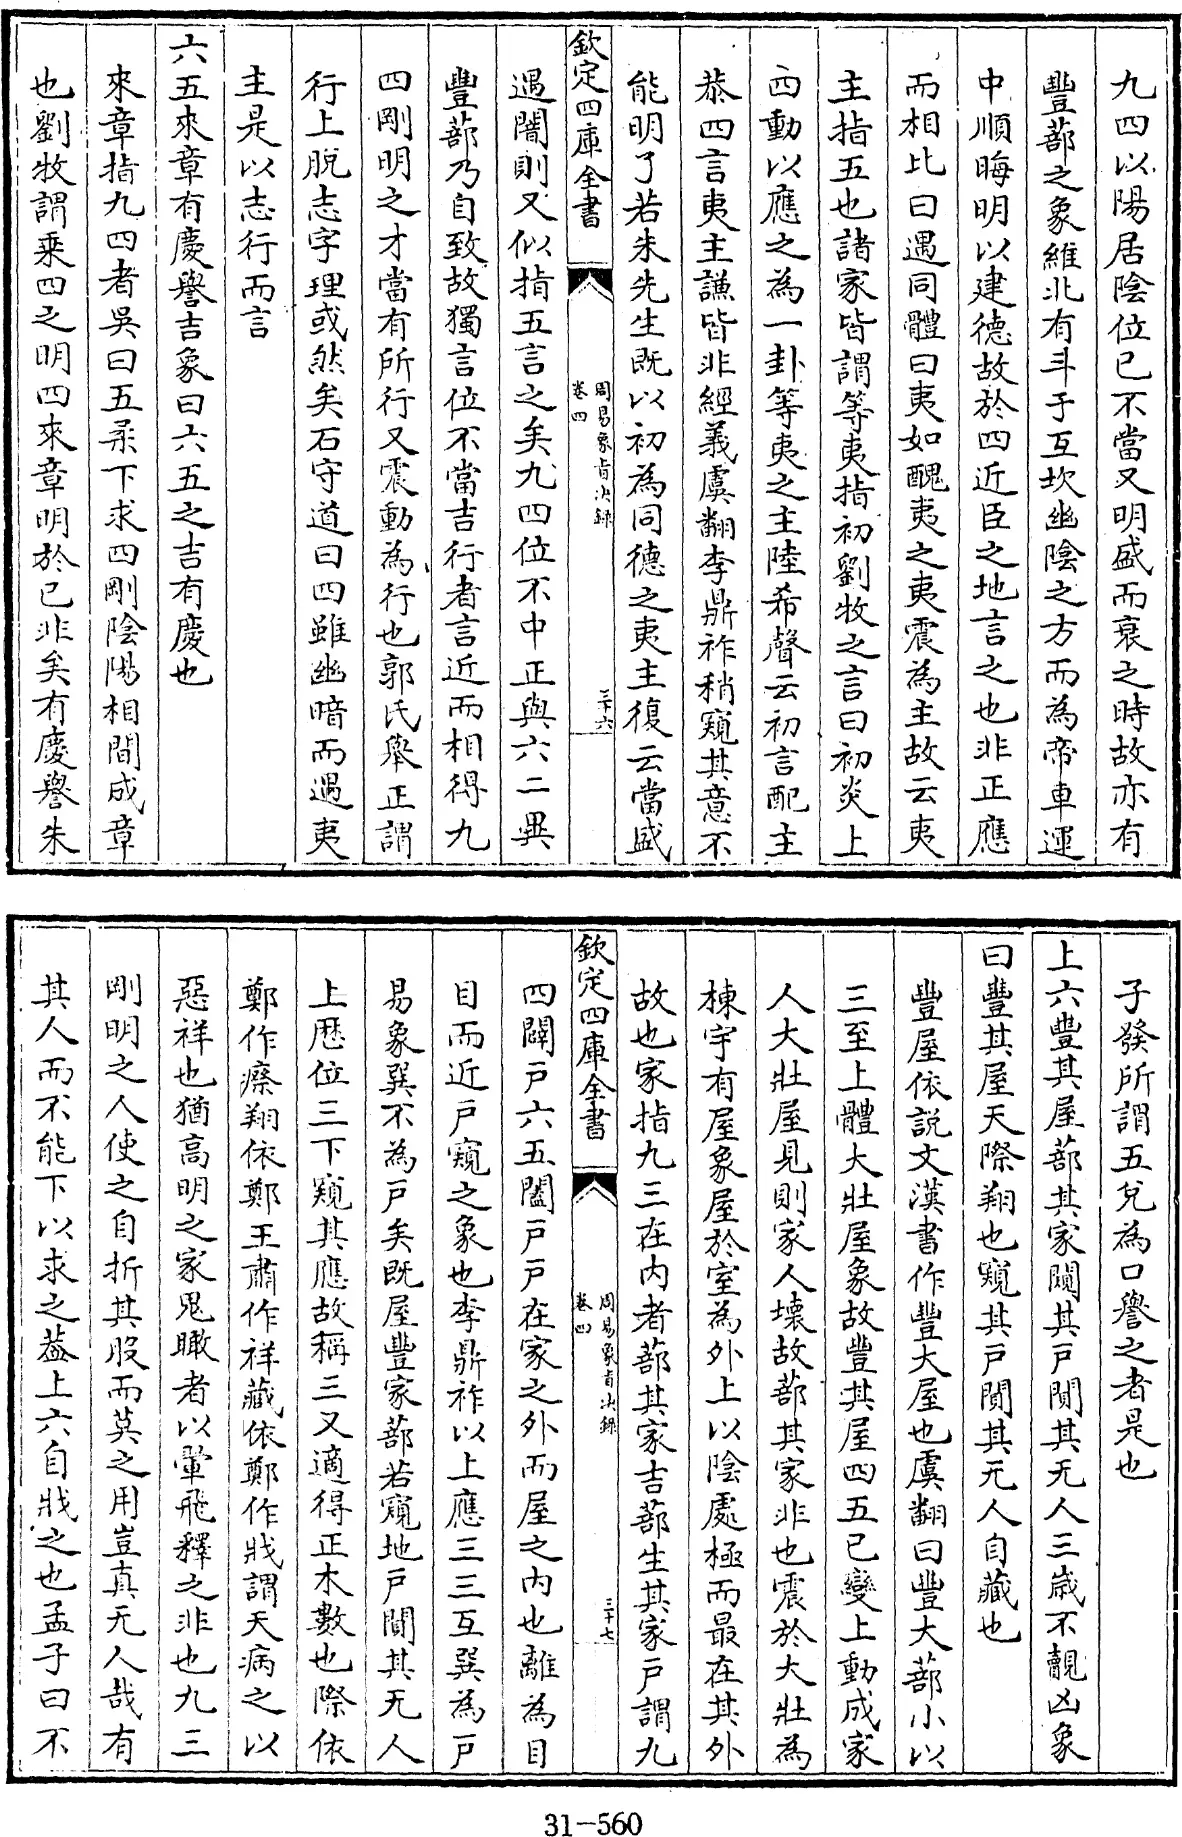 九四以陽居陰位已不當又明盛而衰之時故亦有
豐蔀之象維北有斗于互坎幽陰之方而為帝車運
中順晦明以建德故於四近臣之地言之也非正應
而相比曰遇同體曰夷如醜夷之夷震為主故云夷
主指五也諸家皆謂等夷指初劉牧之言曰初炎上
四動以應之為一卦等夷之主陸希聲云初言配主
恭四言夷主謙皆非經義虞翻李鼎祚稍窺其意不
能明了若朱先生既以初為同德之夷主復云當盛
欽定四庫全書
周易象旨決錄
卷四
三十六
遇闇則又似指五言之矣九四位不中正與六二異
豐蔀乃自致故獨言位不當吉行者言近而相得九
四剛明之才當有所行又震動為行也郭氏舉正謂
行上脫志字理或然矣石守道曰四雖幽暗而遇夷
主是以志行而言
六五來章有慶譽吉象曰六五之吉有慶也
來章指九四者吳曰五柔下求四剛陰陽相間成章
也劉牧謂乘四之明四來章明於已非矣有慶譽朱
子發所謂五兌為口譽之者是也
上六豐其屋蔀其家闚其戸闃其无人三歲不覿凶象
曰豐其屋天際翔也窺其戸闃其无人自藏也
豐屋依說文漢書作豐大屋也虞翻曰豐大蔀小以
三至上體大壯屋象故豐其屋四五已變上動成家
人大壯屋見則家人壞故蔀其家非也震於大壯為
棟宇有屋象屋於室為外上以陰處極而最在其外
故也家指九三在内者蔀其家吉蔀生其家戸謂九
欽定四庫全書
周易象旨決錄
卷四
三十七
四闢戸六五闔戸戸在家之外而屋之内也離為目
目而近戸窺之象也李鼎祚以上應三三互巽為戸
易象巽不為戸矣既屋豐家蔀若窺地戸闃其无人
上歴位三下窺其應故稱三又適得正木數也際依
鄭作瘵翔依鄭王肅作祥藏依鄭作戕謂天病之以
惡祥也猶高明之家鬼瞰者以翬飛釋之非也九三
剛明之人使之自折其股而莫之用豈真无人哉有
其人而不能下以求之葢上六自戕之也孟子曰不
31-560